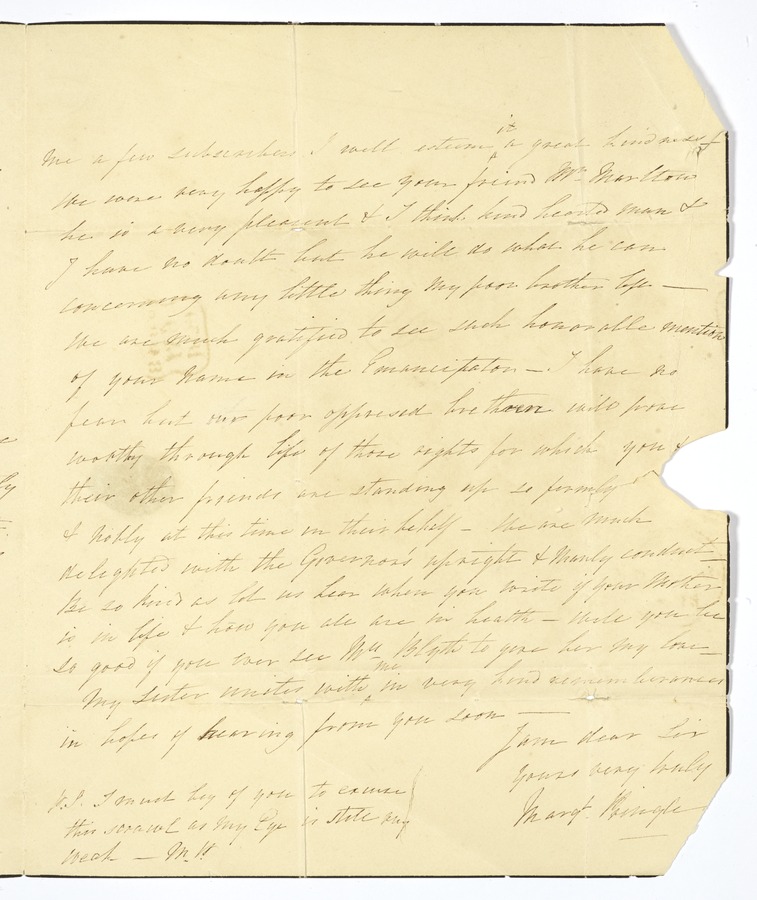 me a few subscribers I will esteem it a great kindness &
We were very happy to see your friend Mr. Marlton
he is a very pleasent & I think kind hearted man &
I have no doubt but he will do what he can
concerning any little thing my poor brother left —
We are much gratified to see such honorable mention
of your name in the Emancipator — I have no
fear but our poor oppresed brethren will prove
worthy through life of those rights for which you &
their other friends are standing up so firmly
& Nobly at this time in their behalf — We are much
delighted with the Governor's upright & Manly conduct —
Be so kind as let us hear when you write if your Mother
is in life & how you all are in health — will you be
so good if you ever see Mrs Blyth to give her my love —
My sister unites with me in very kind rememberances
in hopes of hearing from you soon —
I am dear Sir
Yours very truly
Margt.
P.S. I must beg of you to excuse
this scrawl as my Eye is still very
weak —